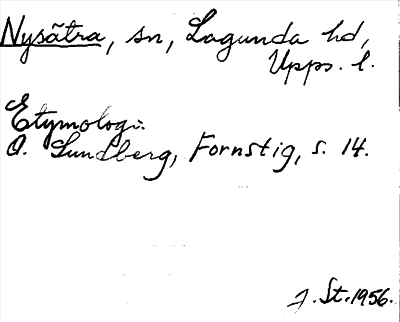 Nysätra, sn, Lagunda hd,
Upps. l.
Etymologi:
O. Lundberg, Fornstig, s. 14.
J. St. 1956.